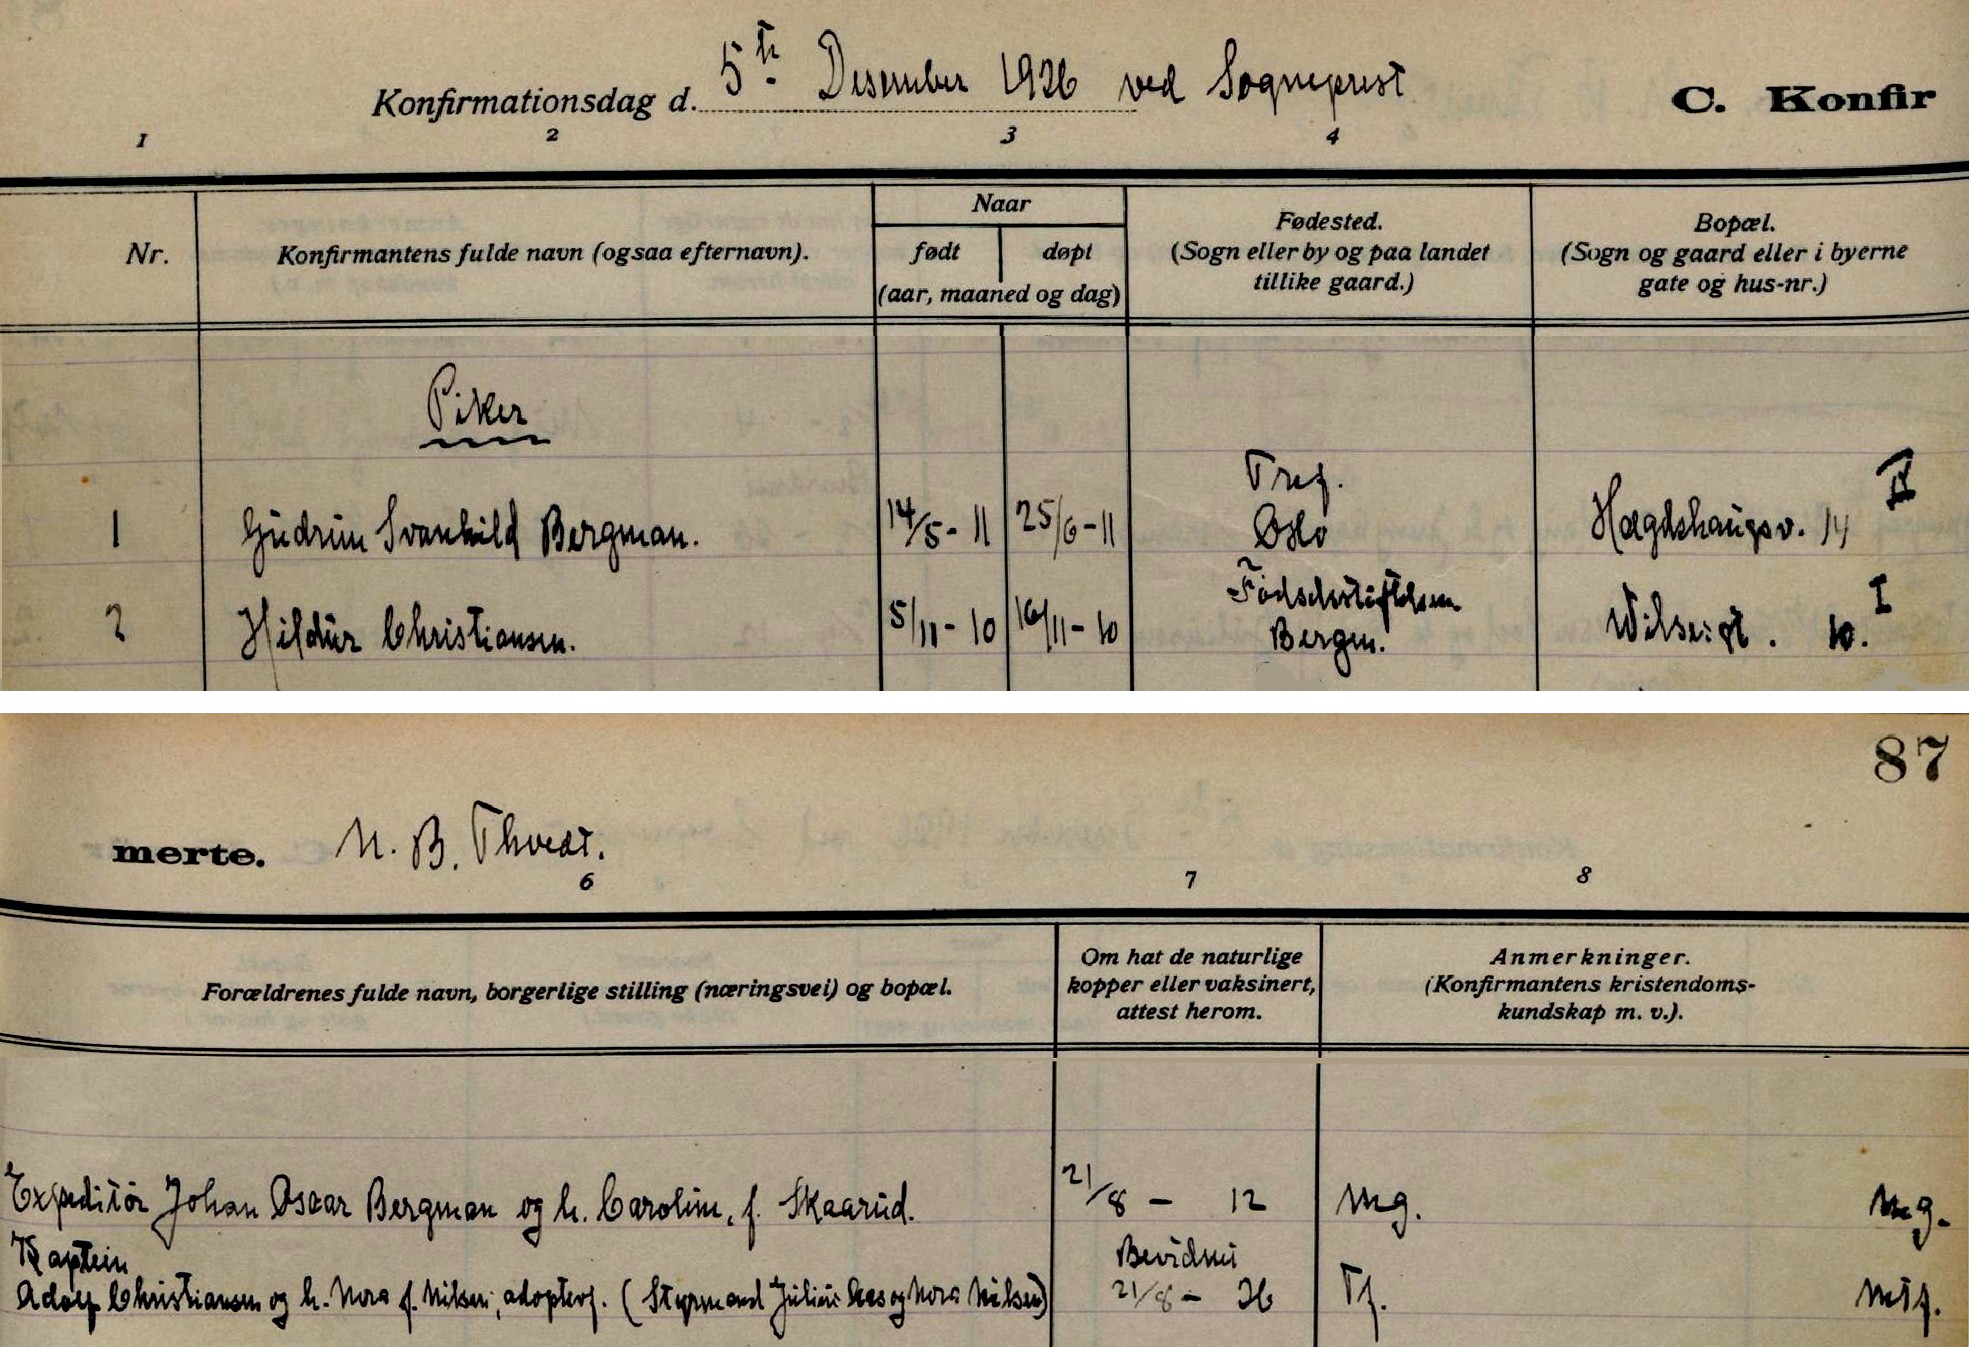 Konfirmationsdag d. 5te Desember 1926 ved Sogneprest C. Konfir
1 2 3 4
Nr.
Konfirmantens fulde navn (ogsaa efternavn).
Naar
født døpt
(aar, maaned og dag)
Fødested.
(Sogn eller by og paa landet
tillike gaard.)
Bopæl.
(Sogn og gaard eller i byerne
gate og hus-nr.)
Piker
1 Gudrun Svanhild Bergman. 14/5 - 11 25/6 - 11 Tref. Oslo Hægdehaugsv. 14 II
2 Hildur Christiansen. 5/11 - 10 16/11 - 10 Fødselsstiftelsen Bergen. Wilsesgt. 10. I
87
merte. N. B. Thvedt.
6 7 8
Forældrenes fulde navn, borgerlige stilling (næringsvei) og bopæl.
Om hat de naturlige
kopper eller vaksinert,
attest herom.
Anmerkninger.
(Konfirmantens kristendoms-
kundskap m. v.).
Expeditør Johan Oscar Bergman og h. Caroline, f. Skaarud. 21/8 - 12 Mg. Mg.
Kaptein
Adolf Christiansen og h. Nora f. Nilsen, adoptivf. (Styrmand Julius Aas og Nora Nilsen) Bevidnet 21/8 - 26 Tf. Mtf.